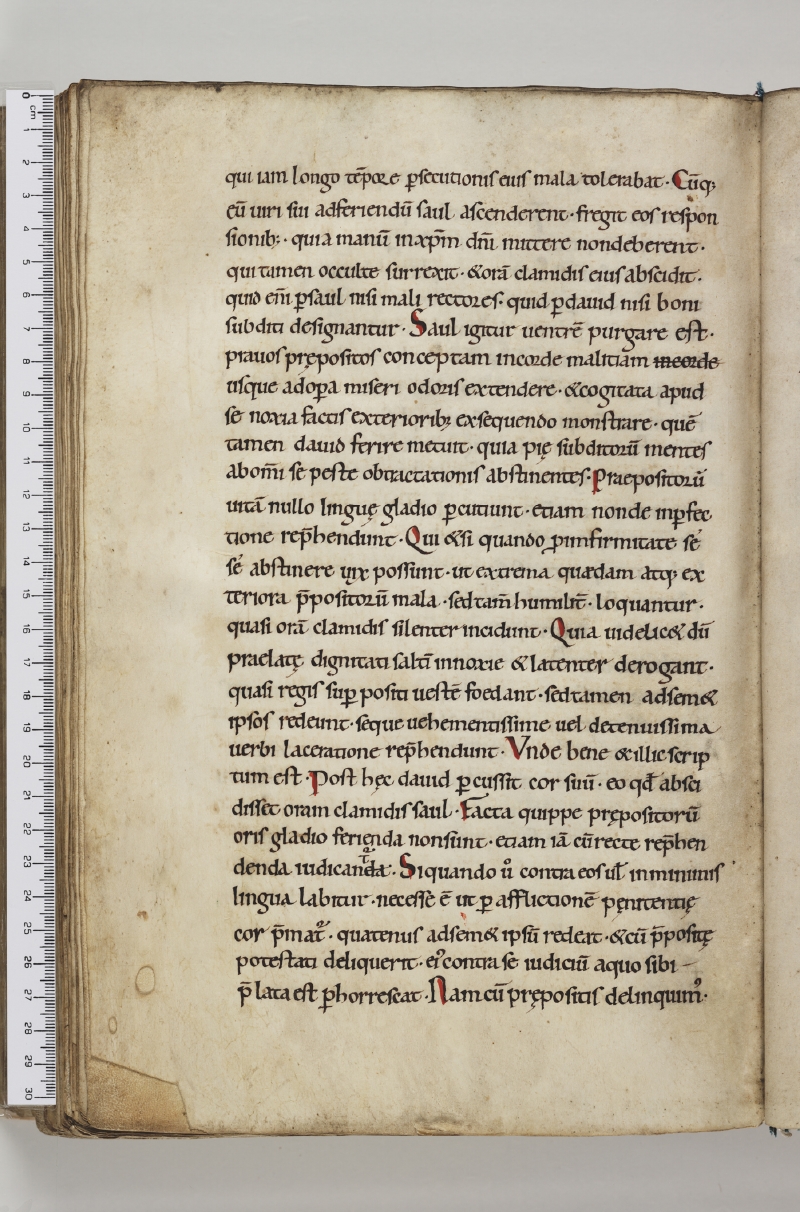 qui iam longo tēpore ꝑsecutionis eius mala tolerabat · Cūq;
eū uiri sui adferiendū saul ascenderent · fregit eos respon
sionib; · quia manū inxp̄m dn̄i mittere nondeberent ·
qui tamen occulte surrexit · &orā clamidis eius abscidit ·
quid em̄ ꝑsaul nisi mali rectores · quid ꝑdauid nisi boni
subditi designantur · Saul igitur uentrē purgare est ·
prauos prępositos conceptam incorde malitiam incorde
usque adopa miseri odoris extendere · &cogitata apud
se noxia factis exteriorib; exsequendo monstrare · quē
tamen dauid ferire metuit · quia pię subditorū mentes
abom̄i se peste obtractationis abstinentes · Praepositorū
uitā nullo linguę gladio ꝑcutiunt · etiam nonde inꝑfec
tione rep̄hendunt · Qui &si quando ꝓinfirmitate se
se abstinere uix possunt · ut extrema quædam atq; ex
teriora p̄positorū mala · sedtam̄ humilit̄ · loquantur ·
quasi orā clamidis silenter incidunt · Quia uidelic& dū
praelatę dignitati saltī innoxie & latenter derogant ·
quasi regis suꝑ positi uestē foedant · sedtamen adsem&
ipsos redeunt · seque uehementissime uel detenuissima
uerbi laceratione rep̄hendunt · Vnde bene &illic scrip
tum est · Post hęc dauid ꝑcussit cor suū · eo qđ absci
disset oram clamidis saul · Facta quippe prępositorū
oris gladio ferienda nonsunt · etiam iā cūrecte rep̄hen
denda iudicant̄da · Siquando ů contra eos uł inminimis
lingua labitur · necesse ē ut ꝑ afflictionē pęnitentię
cor p̄mat̄ · quatenus adsem& ipsū redeat · &cū p̄positę
potestati deliquerit · ei᾽ contra se iudiciū aquo sibi
p̄ lata est ꝑhorrescat · Nam cū prępositis delinquim᾽ ·